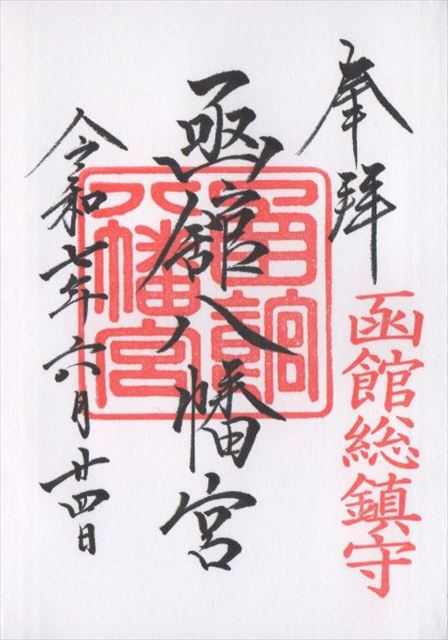 奉拝
函館総鎮守
函館八幡宮
函館八幡宮
令和七年六月廿四日